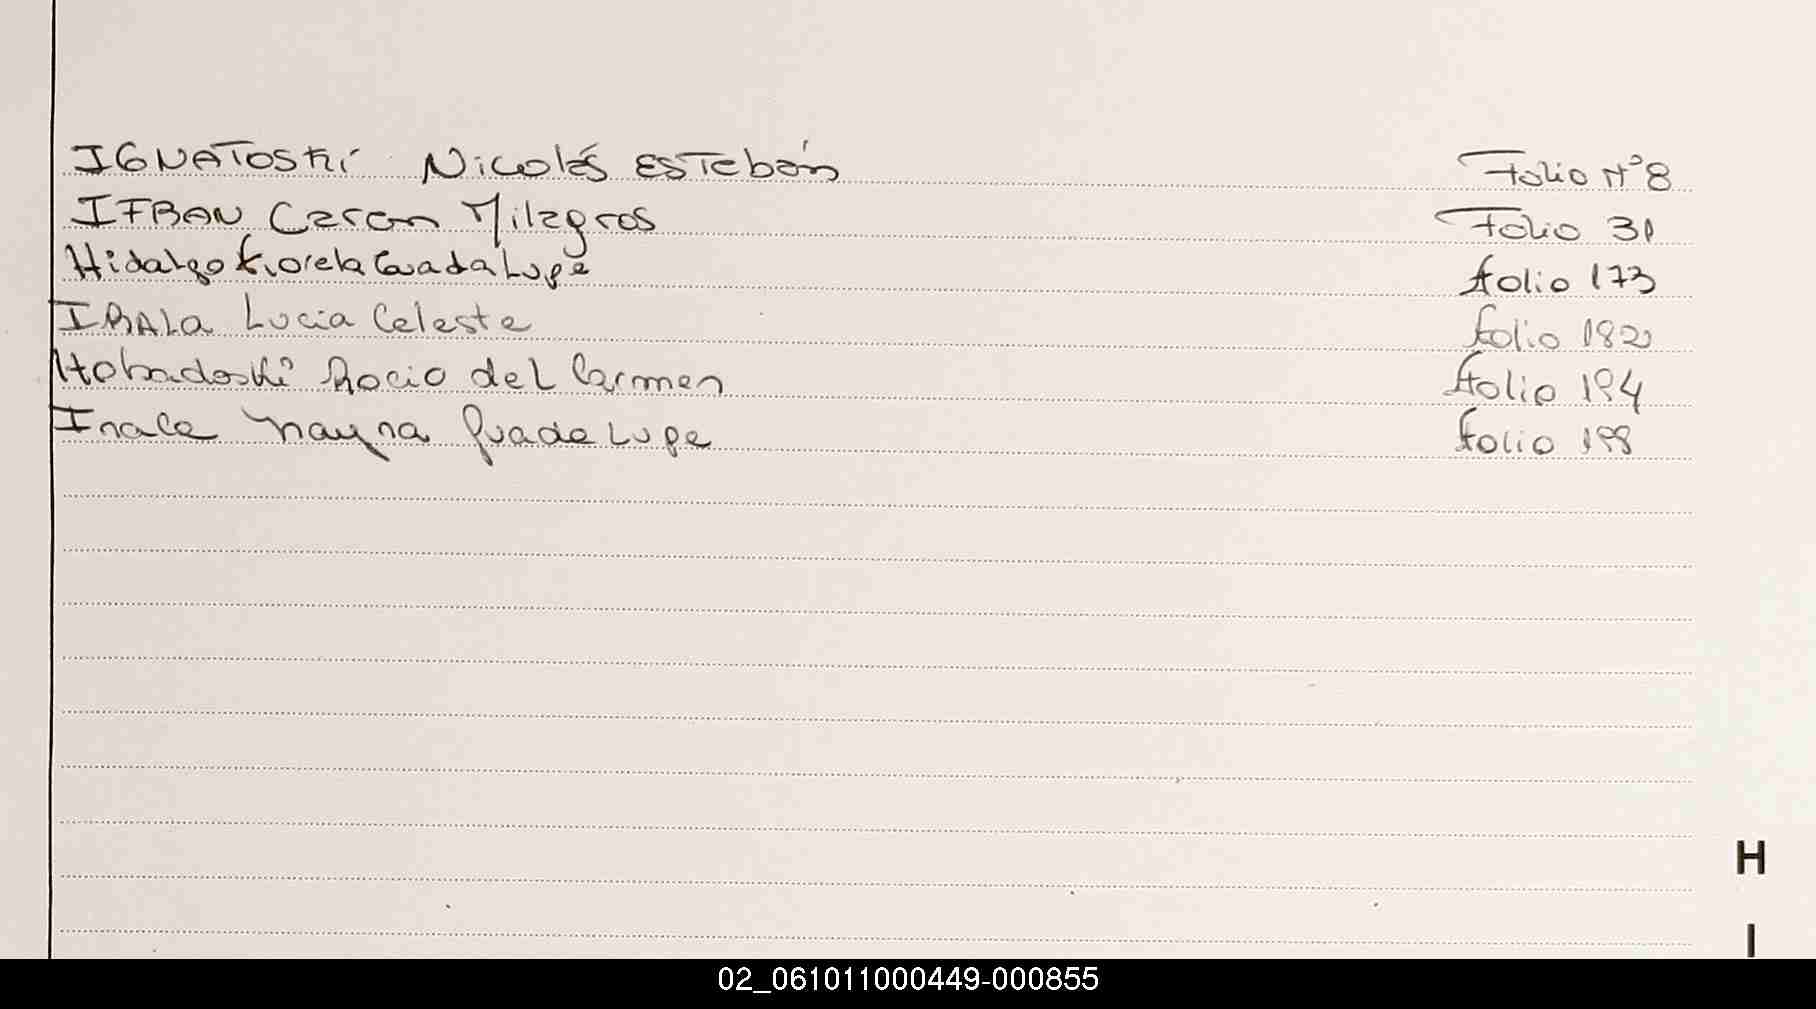 IGNATOSKI Nicolás Esteban Folio Nº 8
IFRAN Caren Milagros Folio 31
Hidalgo Fiorela Guadalupe folio 173
IRALA Lucia Celeste folio 182
Rocio del Carmen folio 194
Guadalupe folio 198
H
I
02_061011000449-000855